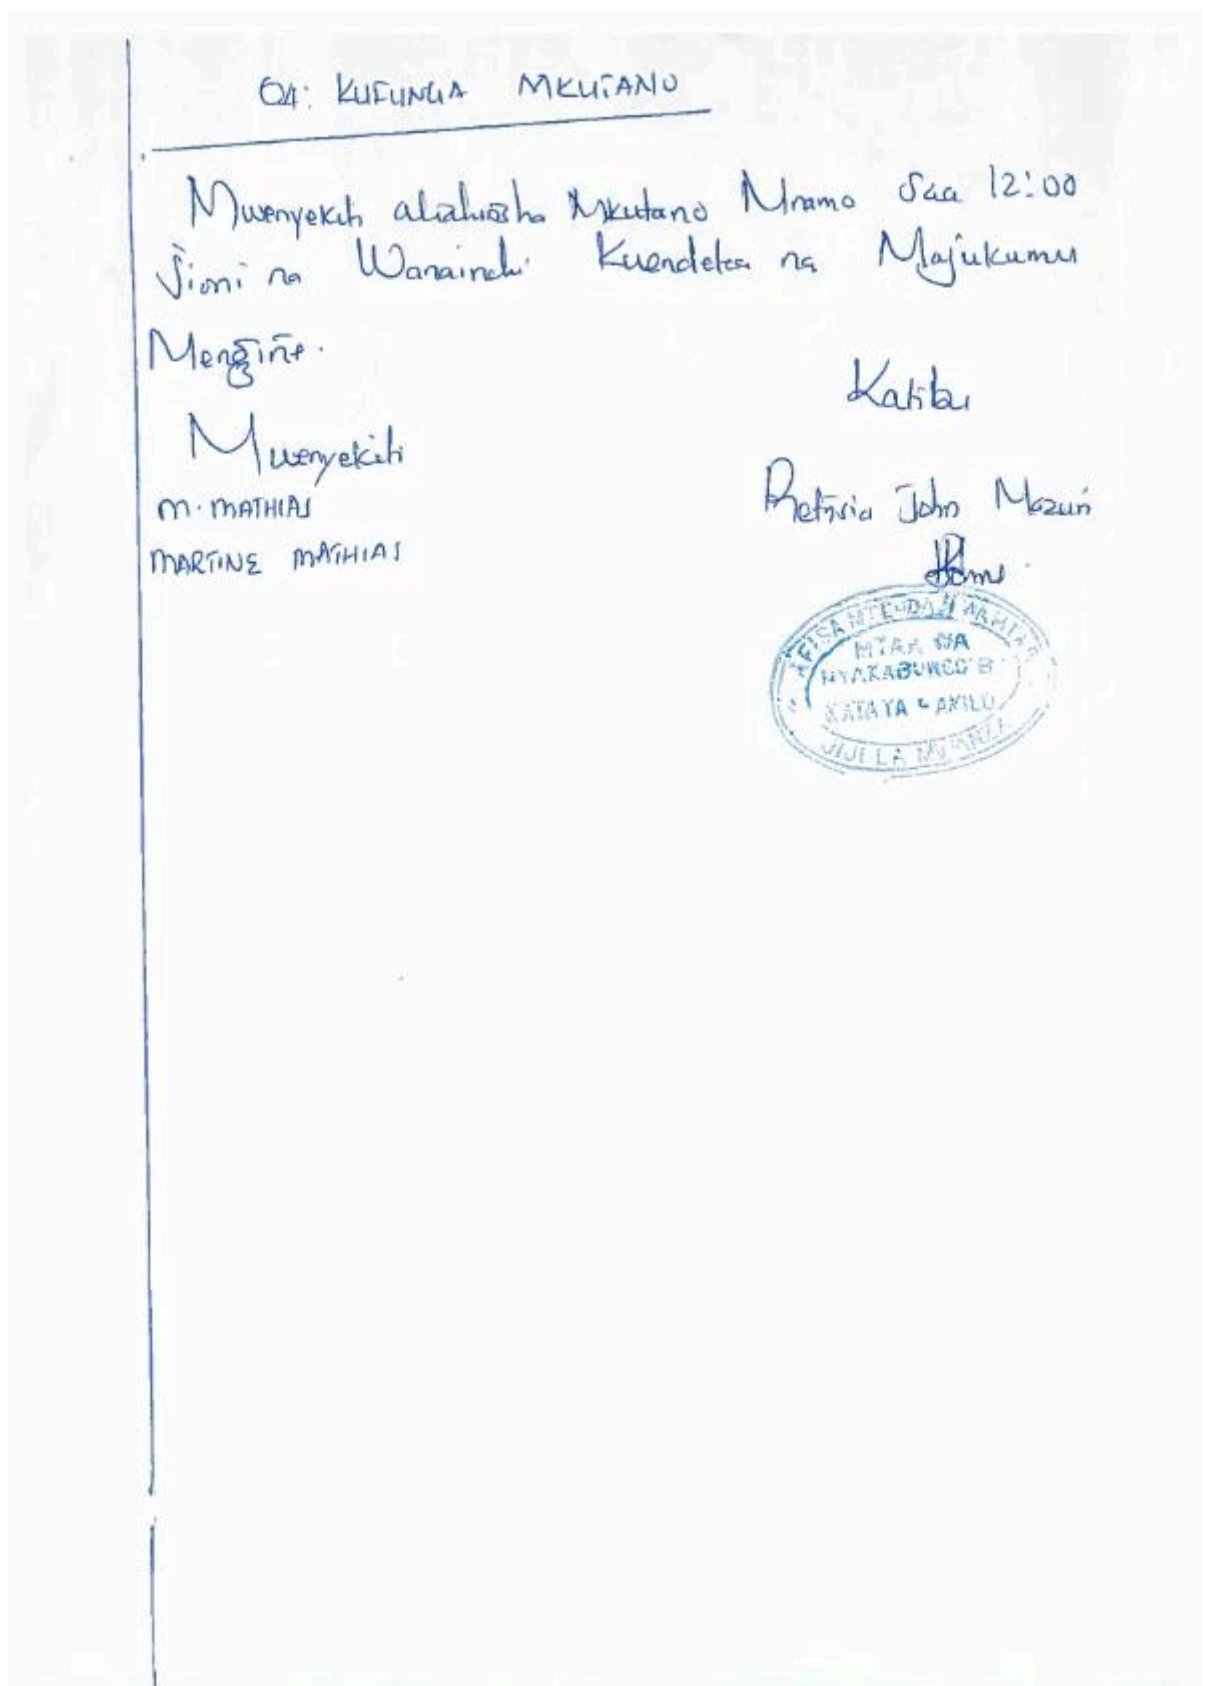 04: KUFUNGA MKUTANO
Mwenyekiti aliahirisha Mkutano Mnamo Saa 12:00
Jioni na Wanainchi Kuendelea na Majukumu
Mengine.
Katibu
Mwenyekiti
M. MATHIAS
John
MARTINE MATHIAS
AFISA MTENDAJI
MTAA WA
NYAKABUNGO B
KATAYA
JIJI LA MWANZA